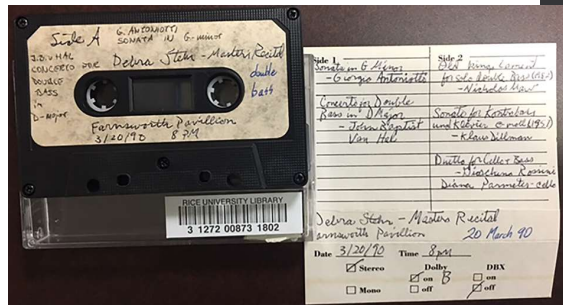 Side A
G. ANTONIOTTI
SONATA IN G-minor
J.B. VAN HAL
CONCERTO FOR
DOUBLE
BASS
in
D-Major
Debra Stehr - Masters Recital
double
bass
Farnsworth Pavillion
3/20/90 8 PM
RICE UNIVERSITY LIBRARY
3 1272 00873 1802
Side 1
Sonata in G Minor
- Giorgio Antoniotti
Concerto for Double
Bass in D Major
- John Baptist
Van Hal
Side 2
Old King's Lament
for solo Double Bass
- Nicholas Maw
Sonate für Kontrabass
und Klavier (1951)
- Klaus Dillman
Duetto for Cello + Bass
- Gioachino Rossini
Diana Parmeter - cello
Debra Stehr - Masters Recital
Farnsworth Pavillion 20 March 90
Date 3/20/90 Time 8pm
Stereo Dolby DBX
on B on
Mono off off